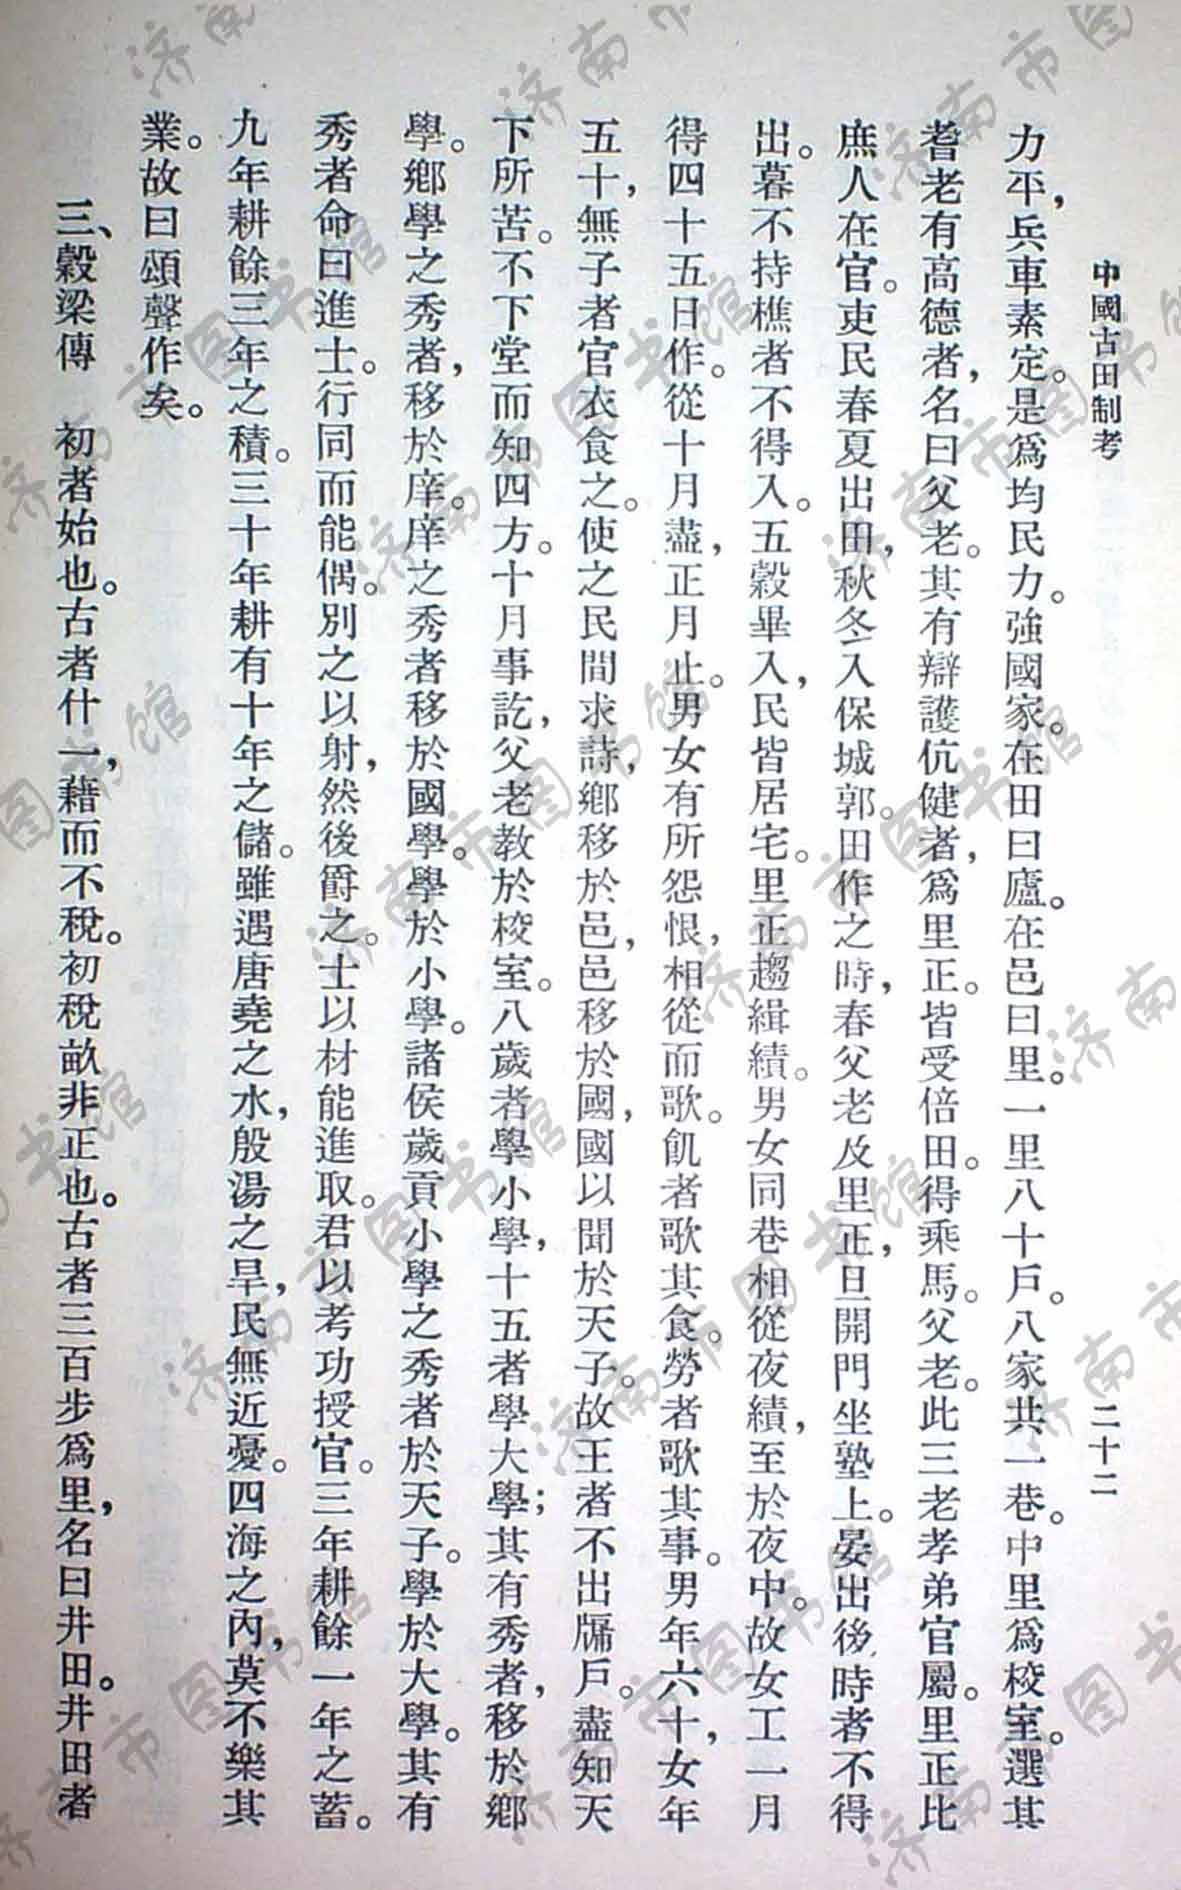 中國古田制考 二十二
力平，兵車素定。是爲均民力。強國家。在田曰廬。在邑曰里。一里八十戶。八家共一巷。中里爲校室。選其
耆老有高德者，名曰父老。其有辯護伉健者，爲里正。皆受倍田。得乘馬。父老。此三老孝弟官屬。里正比
庶人在官。吏民春夏出田，秋冬入保城郭。田作之時，春父老及里正，旦開門坐塾上。晏出後時者不得
出。暮不持樵者不得入。五穀畢入，民皆居宅。里正趨緝績。男女同巷相從夜績，至於夜中。故女工一月
得四十五日作。從十月盡，正月止。男女有所怨恨，相從而歌。飢者歌其食。勞者歌其事。男年六十，女年
五十，無子者官衣食之。使之民間求詩，鄉移於邑，邑移於國，國以聞於天子。故王者不出牖戶。盡知天
下所苦。不下堂而知四方。十月事訖，父老教於校室。八歲者學小學，十五者學大學；其有秀者，移於鄉
學。鄉學之秀者，移於庠。庠之秀者移於國學。學於小學。諸侯歲貢小學之秀者於天子。學於大學。其有
秀者命曰進士。行同而能偶。別之以射，然後爵之。士以材能進取。君以考功授官。三年耕餘一年之蓄。
九年耕餘三年之積。三十年耕有十年之儲。雖遇唐堯之水，殷湯之旱，民無近憂。四海之內，莫不樂其
業。故曰頌聲作矣。
三、穀梁傳 初者始也。古者什一，藉而不稅。初稅畝非正也。古者三百步爲里，名曰井田。井田者
济南市图书馆